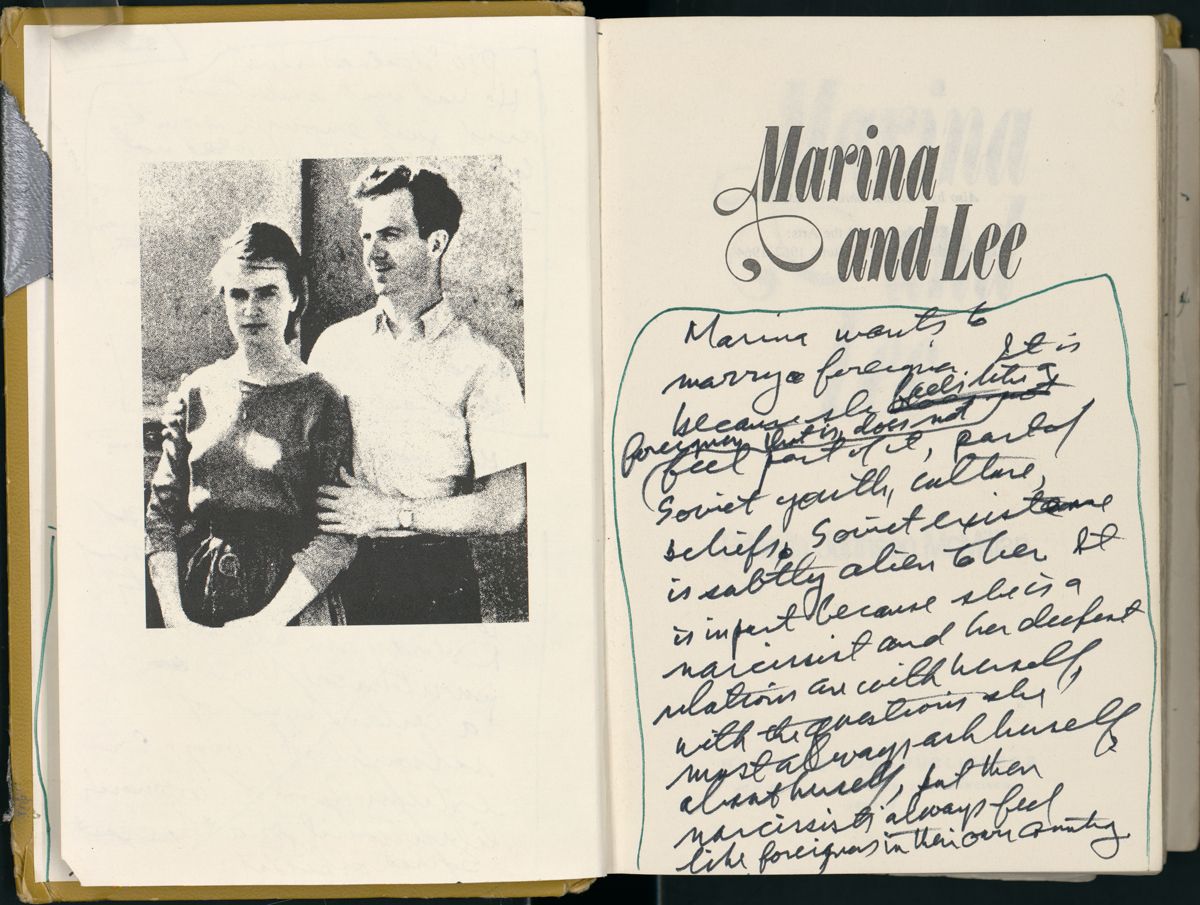 Marina
and Lee
Marina wants to
marry a foreigner. It is
because she feels like a
foreigner, that is, does not
feel part of it, part of
Soviet youth, culture,
beliefs. Soviet existence
is subtly alien to her. It
is in part because she is a
narcissist and her deepest
relations are with herself,
with the questions she
must always ask herself
about herself, but then
narcissists always feel
like foreigners in their own country.